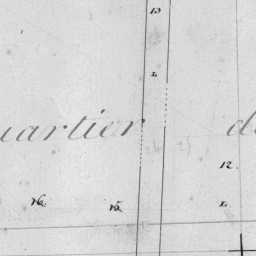 13
L
uartier d
12
16 15 L